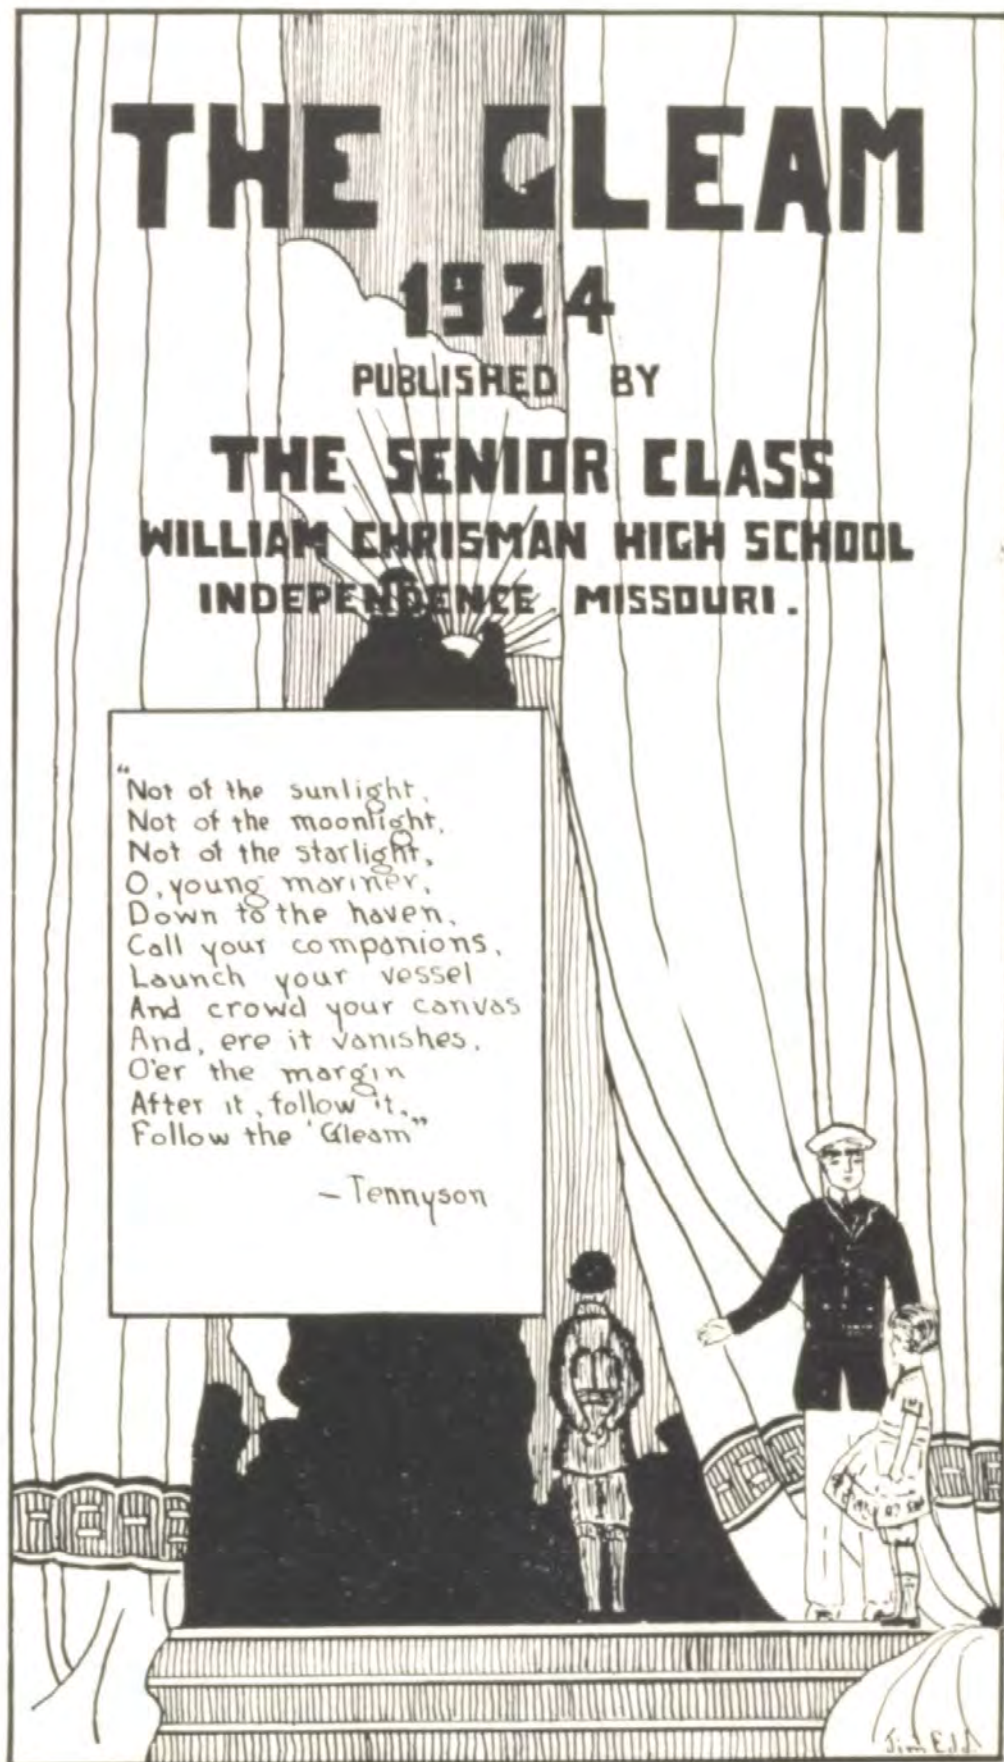 THE GLEAM
1924
PUBLISHED BY
THE SENIOR CLASS
WILLIAM CHRISMAN HIGH SCHOOL
INDEPENDENCE MISSOURI.
"Not of the sunlight,
Not of the moonlight,
Not of the starlight,
O, young mariner,
Down to the haven,
Call your companions,
Launch your vessel
And crowd your canvas
And, ere it vanishes,
O'er the margin
After it, follow it,
Follow the 'Gleam"
– Tennyson
Jim